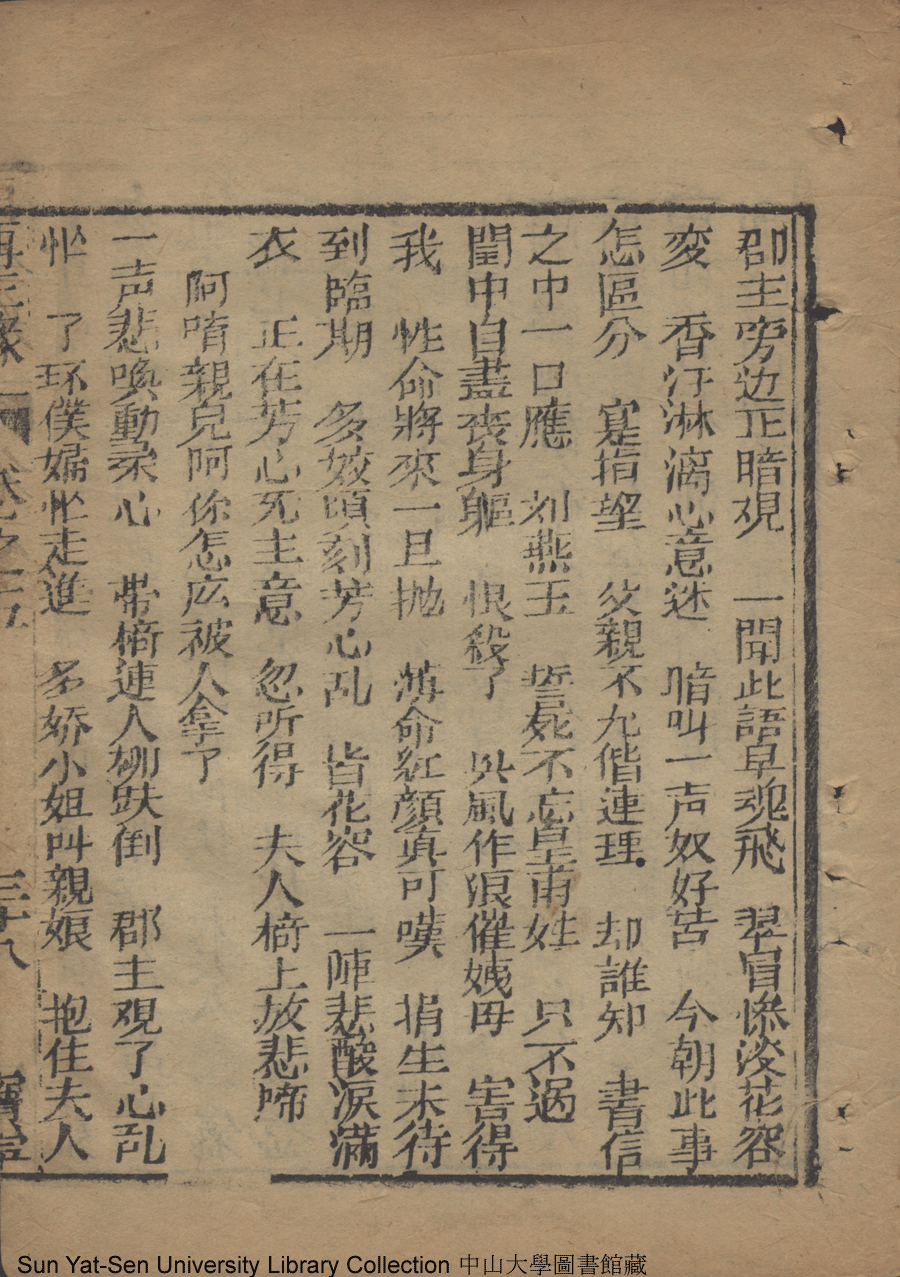 郡主旁边正暗覌　一聞此語皁魂飛　翠眉慘淡花容
変　香汗淋漓心意迷　暗叫一声奴好苦　今朝此事
怎區分　寔指望　父親不允偕連理　却誰知　書信
之中一口應　刘燕王　誓死不忘皇甫姓　只不過
閨中自盡喪身軀　恨殺了　興風作浪催姨母　害得
我　性命將來一旦抛　薄命紅顏真可嘆　捐生未待
到臨期　多姣頃刻芳心乱　皆花容　一陣悲酸淚滿
衣　正在芳心死主意　忽听得　夫人樓上放悲啼
阿唷親兒阿你怎庅被人拿了
一声悲喚動柔心　帶椅連人栁趺倒　郡主覌了心乱
忙　了环僕婦忙走進　多娇小姐叫親娘　抱住夫人
再生緣　卷之十五　三十八　寶寧
Sun Yat-Sen University Library Collection 中山大學圖書館藏